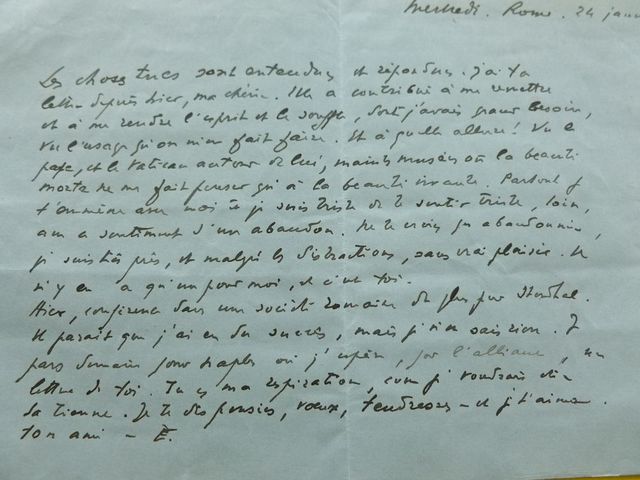 Mercredi. Rome. 24 janv
Les choses tues sont entendues et répondues. J'ai ta
lettre depuis hier, ma chérie. Elle a contribué à me remettre
et à me rendre l'esprit et le souffle, dont j'avais grand besoin,
vu l'usage qu'on m'en fait faire. Et à quelle allure! Vu le
pape, et le Vatican autour de lui, maints musées où la beauté
morte ne me fait penser qu'à la beauté vivante. Partout je
t'emmène avec moi et je suis triste de te sentir triste, loin,
avec ce sentiment d'un abandon. Ne te crois pas abandonnée,
je suis là, près, et malgré les distractions, sans vrai plaisir. Il
n'y en a qu'un pour moi, et c'est toi.
Hier, conférence dans une société romaine de plus pur Stendhal.
Il paraît que j'ai eu du succès, mais je n'en sais rien. Je
pars demain pour Naples où j'espère, par l'alliance, une
lettre de toi. Tu es ma respiration, comme je voudrais être
la tienne. Je te dis pensées, voeux, tendresses – et je t'aime.
ton ami – E.